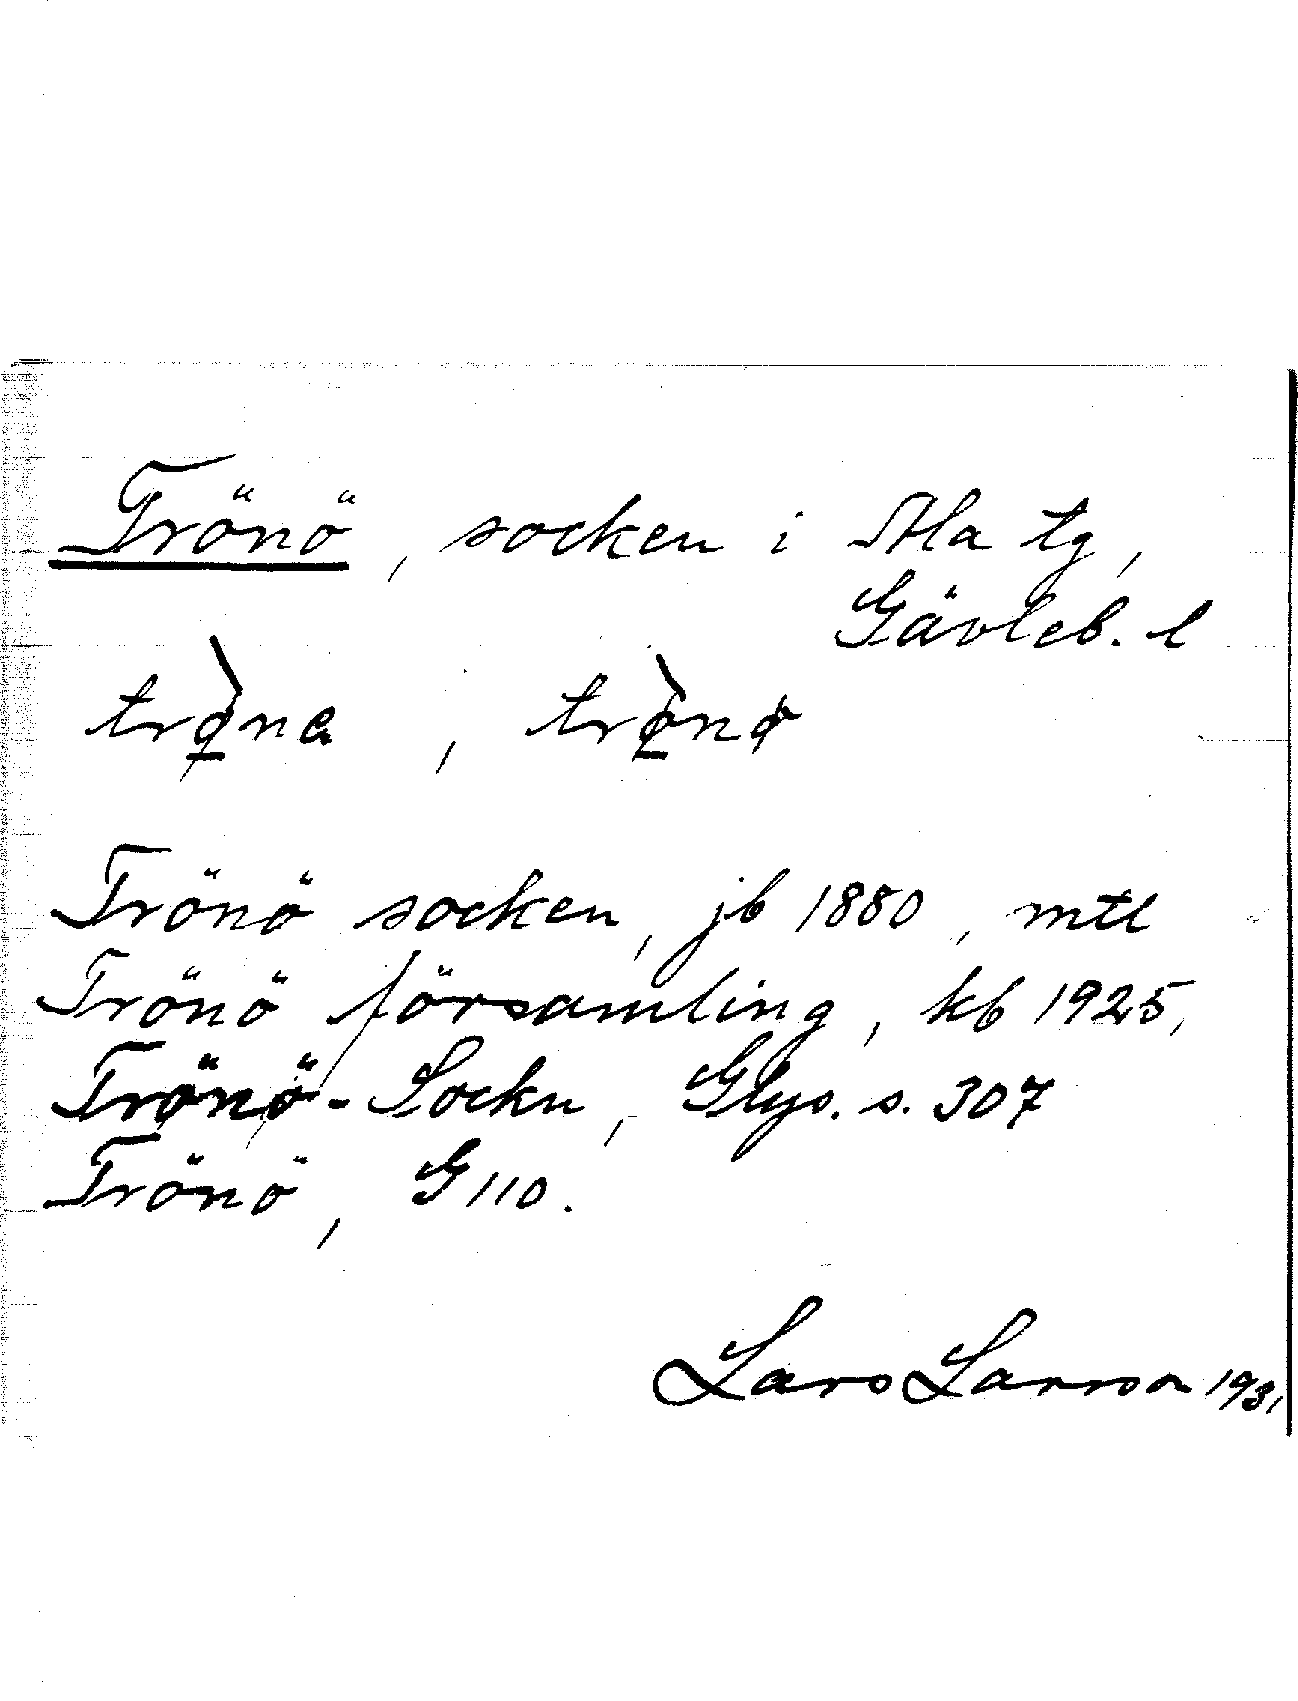 Trönö, socken i Ala tg,
Gävleb. l
trø̀na, trø̀nø
Trönö socken, jb 1880, mtl
Trönö församling, kb 1925,
Trönö-Sockn, Glys. s. 307
Trönö, G 110.
Lars Larsson 1931